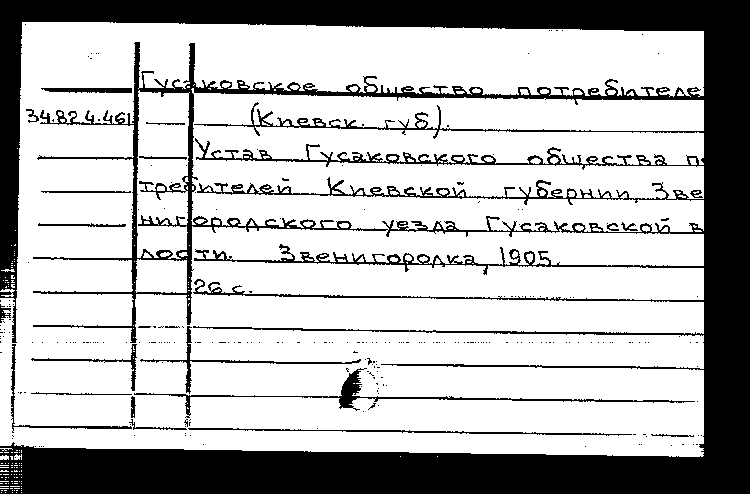 Гусаковское общество потребителе
34.82 4.461 (Киевск. губ.).
Устав Гусаковского общества по
требителей Киевской губернии, Зве
нигородского уезда, Гусаковской в
лости. Звенигородка, 1905.
26 с.